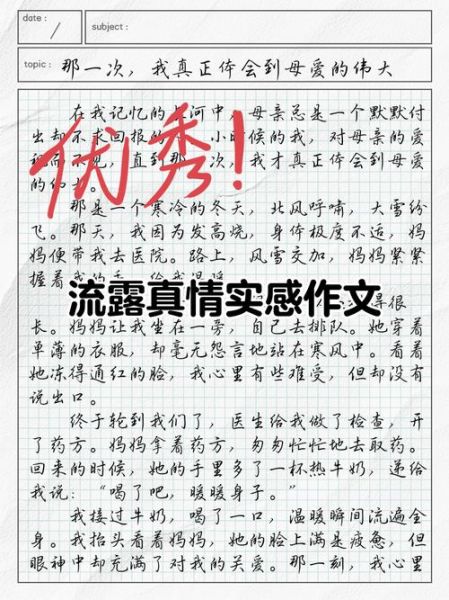 date :
subject :
topic : 那一次，我真正体会到母爱的伟大
在我记忆的长河中，母亲总是一个默默付
出却不求回报的 小时候的我，对母亲的爱
视而不见，直到那一次，我才真正体会到母爱
的伟大。
优秀！
那是一个寒冷的冬天，北风呼啸，大雪纷
飞。那天，我因为发高烧，身体极度不适，妈
妈便带我去医院。路上，风雪交加，妈妈紧紧
握着我的手，给我温暖
流露真情实感作文
得很
长。妈妈让我坐在一旁，自己去排队。她穿着
单薄的衣服，却毫无怨言地站在寒风中。看着
她冻得通红的脸，我心里有些难受，但却没有
说出口。
终于轮到我们了，医生给我做了检查，开
了药方。妈妈拿着药方，匆匆忙忙地去取药。
回来的时候，她的手里多了一杯热牛奶，递给
我说：“喝了吧，暖暖身子。”
我接过牛奶，喝了一口，温暖瞬间流遍全
身。我抬头看着妈妈，她的脸上满是疲惫，但
眼神中却充满了对我的关爱。那一刻，我心里